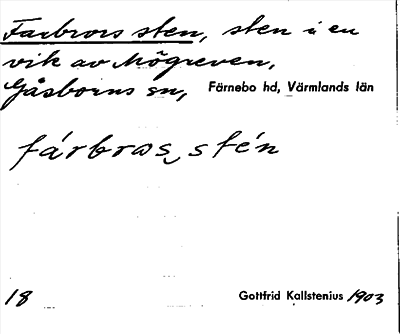 Farbrors sten, sten i en
vik av Mögreven,
Gåsborns sn, Färnebo hd, Värmlands län
fárbros sték
18 Gottfrid Kallstenius 1903